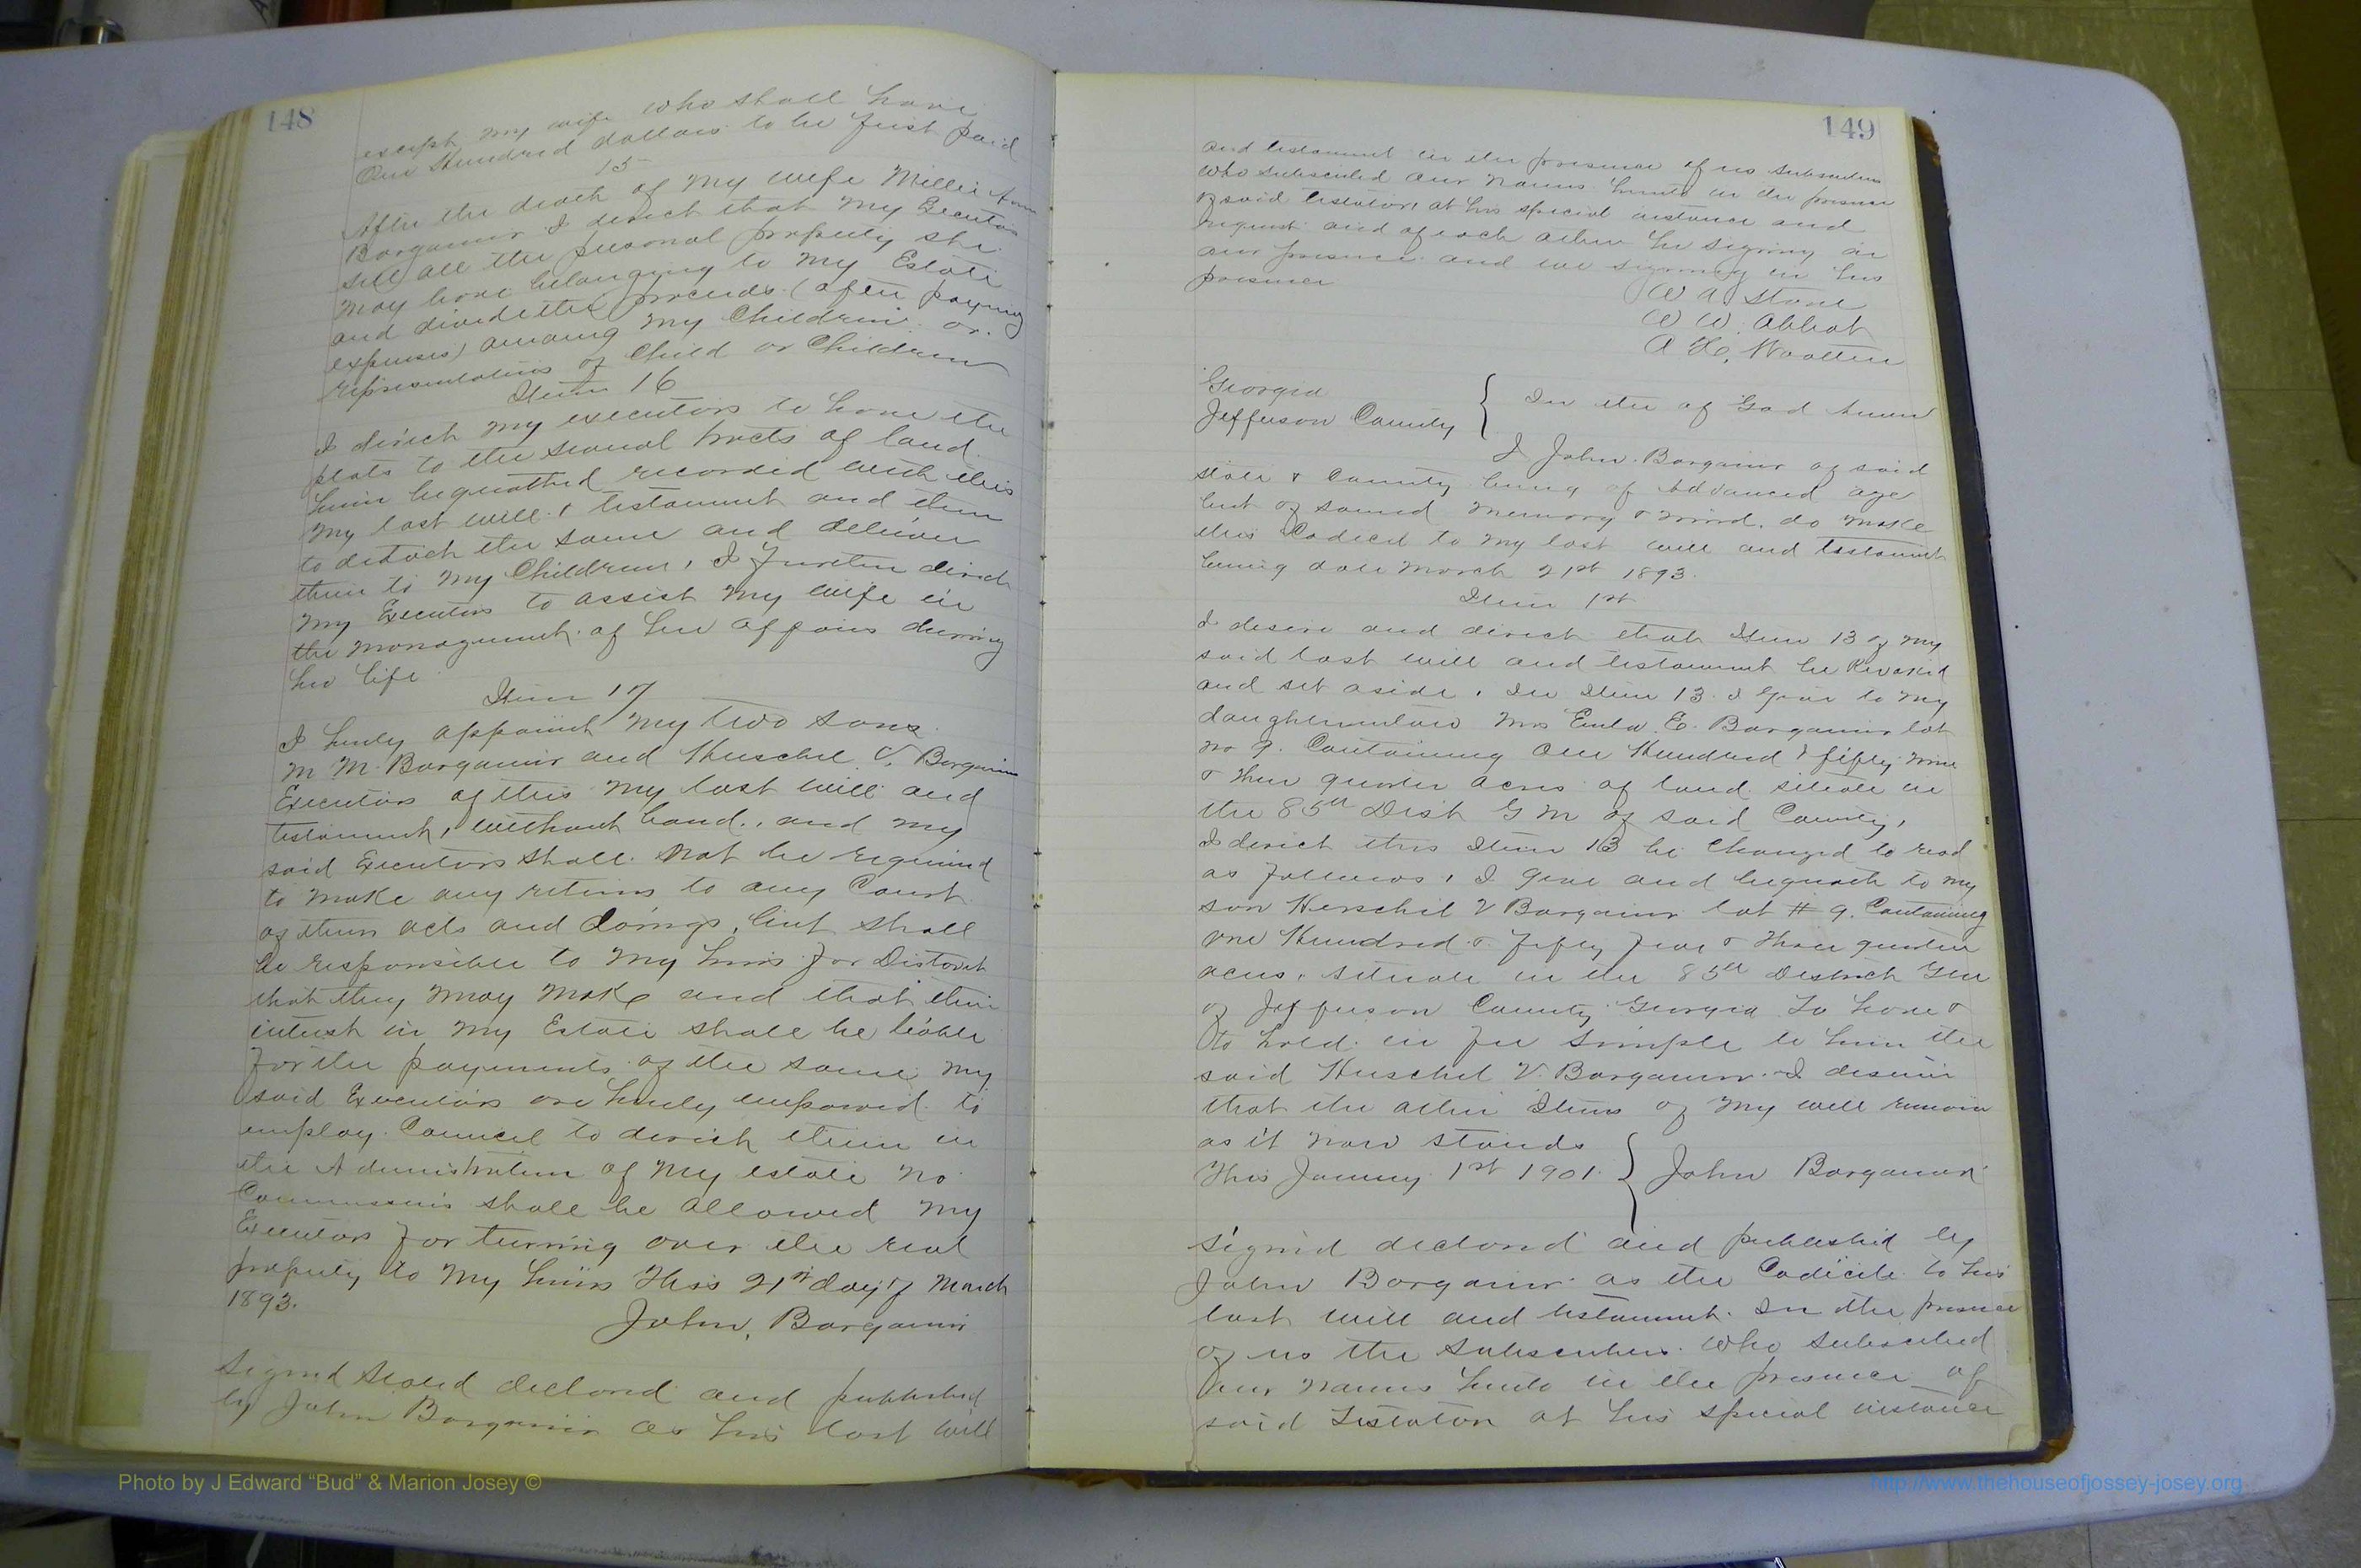 148
except my wife who shall have
One Hundred dollars to be first paid
15
After the death of my wife Millie Ann
Bargainer I direct that my Executors
sell all the personal property she
may have belonging to my Estate
and divide the proceeds (after paying
expenses) among my Children or
representatives of Child or Children
Item 16
I direct my executors to have the
plats to the several tracts of land
herein bequathed recorded with this
my last will & testament and then
to detach the same and deliver
them to my Children, I further direct
my Executors to assist my wife in
the management of her affairs during
her life
Item 17
I herby appoint my two sons
M M. Bargainer and Herschel V. Bargainer
Executors of this my last will and
testament, without bond, and my
said Executors shall not be required
to make any returns to any Court
of their acts and doings, but shall
be responsible to my heirs for
that they may make and that their
interest in my Estate shall be liable
for the payments of the same my
said Executors are herby empowerd to
employ Council to direich them in
the Administration of my estate no
Commissions shall be allowed my
Executors for turning over the real
property to my heirs This 21st day of March
1893.
John, Bargainer
Signed Sealed declared and published
by John Bargainer as his last will
149
and testament in the presence of us subscribers
who subscribed our names hereto in the presence
of said testator, at his special instance and
request and of each other he signing in
our presence and we signing in his
presence
W A Stone
W W. Abbot
A H, Wootten
Georgia
Jefferson County { In the of God Amen
I John Bargainer of said
State & County being of Advanced age
but of sound memory & mind, do make
this Codicil to my last will and testament
being date March 21st 1893.
Item 1st
I desire and direct that Item 13 of my
said last will and testament be Revoked
and set aside, In Item 13. I give to my
daughterinlaw Mrs Eula E. Bargainer lot
no 9. Containing One Hundred & fifty nine
& three quarter acres of land situate in
the 85th Dist G M of said County,
I direct this Item 13 be Changed to read
as follows, I give and bequath to my
son Herschel V Bargainer lot # 9. Containing
one Hundred & fifty five & three quarter
acres, situate in the 85th District
of Jefferson County Georgia To have &
to hold in fee simple to him the
said Herschel V. Bargainer. I desire
that the other Items of my will remain
as it now stands
This January 1st 1901. } John Bargainer
Signed declared and published by
John Bargainer as the Codicile to his
last will and testament. In the presence
of us the subscribers who subscribed
our names hereto in the presence of
said Testator at his special instance
Photo by J Edward “Bud” & Marion Josey ©
http://www.thehouseofjossey-josey.org